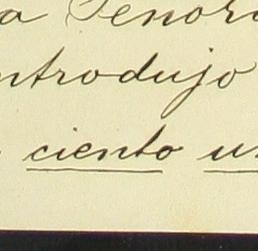 a Senora
ntrodujo
ciento un